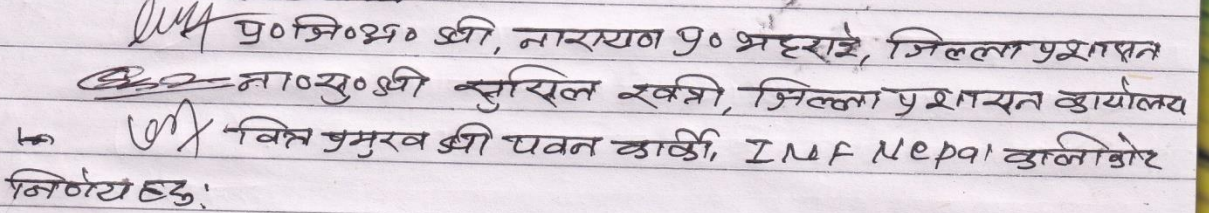 प्र०जि०अ० श्री, नारायण प्र० भट्टराई, जिल्ला प्रशासन
ना०सु०श्री सुसिल खत्री, जिल्ला प्रशासन कार्यालय
वित्त प्रमुख श्री पवन कार्की, INF Nepal कालिकोट
निर्णय हरु: